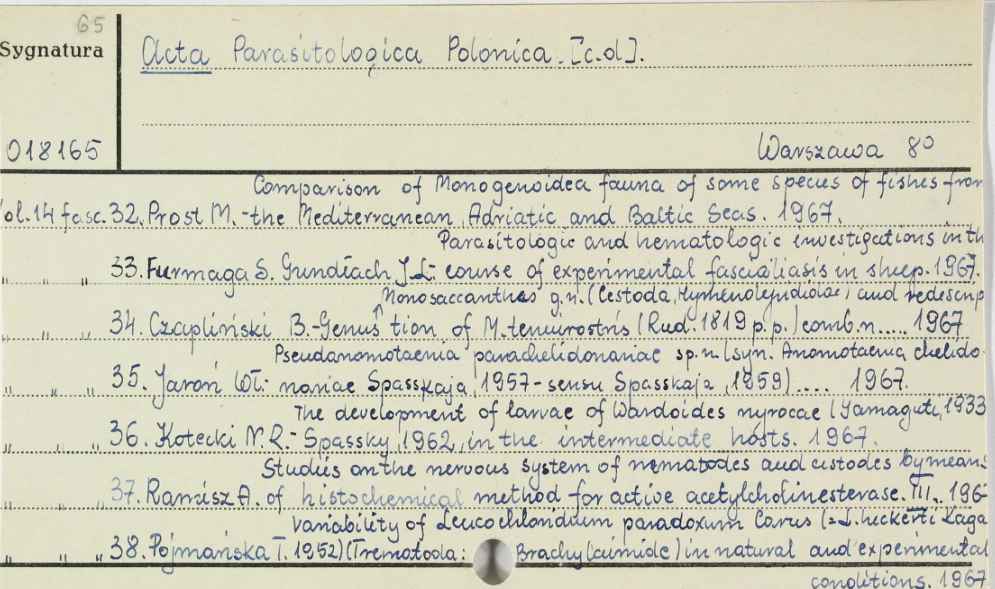 65
Sygnatura
Acta Parasitologica Polonica. [c.d].
018165
Warszawa 8°
Comparison of Monogenoidea fauna of some species of fishes from
ol.14 fasc. 32. Prost M.- the Mediterranean, Adriatic and Baltic Seas. 1967.
Parasitologic and hematologic investigations in th
" " " 33. Furmaga S. Gundlach J.L.- course of experimental fascioliasis in sheep. 1967.
Monosaccanthes g.n. (Cestoda, Hymenolepididae) and redescrip
" " " 34. Czapliński B.- Genus ↑ tion of M. tenuirostris (Rud. 1819 p.p.) comb.n..... 1967
Pseudanomotaenia parachelidonariae sp.n. (syn. Anomotaenia chelido-
" " " 35. Jaroń Wł.- nariae Spasskaja, 1957 - sensu Spasskaja, 1959) .... 1967.
The development of larvae of Wardoides nyrocae (Yamaguti, 1933
" " " 36. Kotecki N.R.- Spassky, 1962, in the intermediate hosts. 1967.
Studiis on the nervous system of nematodes and cestodes by means
" " " 37. Ramisz A. of histochemical method for active acetylcholinesterase. III.. 196
Variability of Leucochloridium paradoxum Carus (=L. heckerti Kaga
" " " 38. Pojmańska T. 1952) (Trematoda: Brachylaimidae) in natural and experimental
conditions. 1967